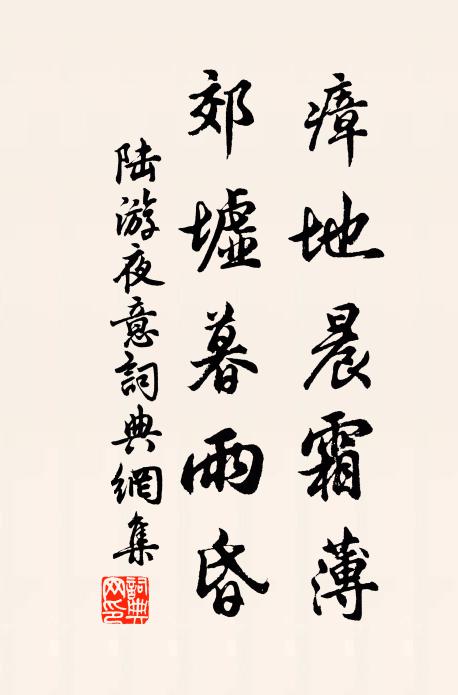 瘴地晨霜薄
郊墟暮雨昏
陆游夜意詞典網集
詞典網印